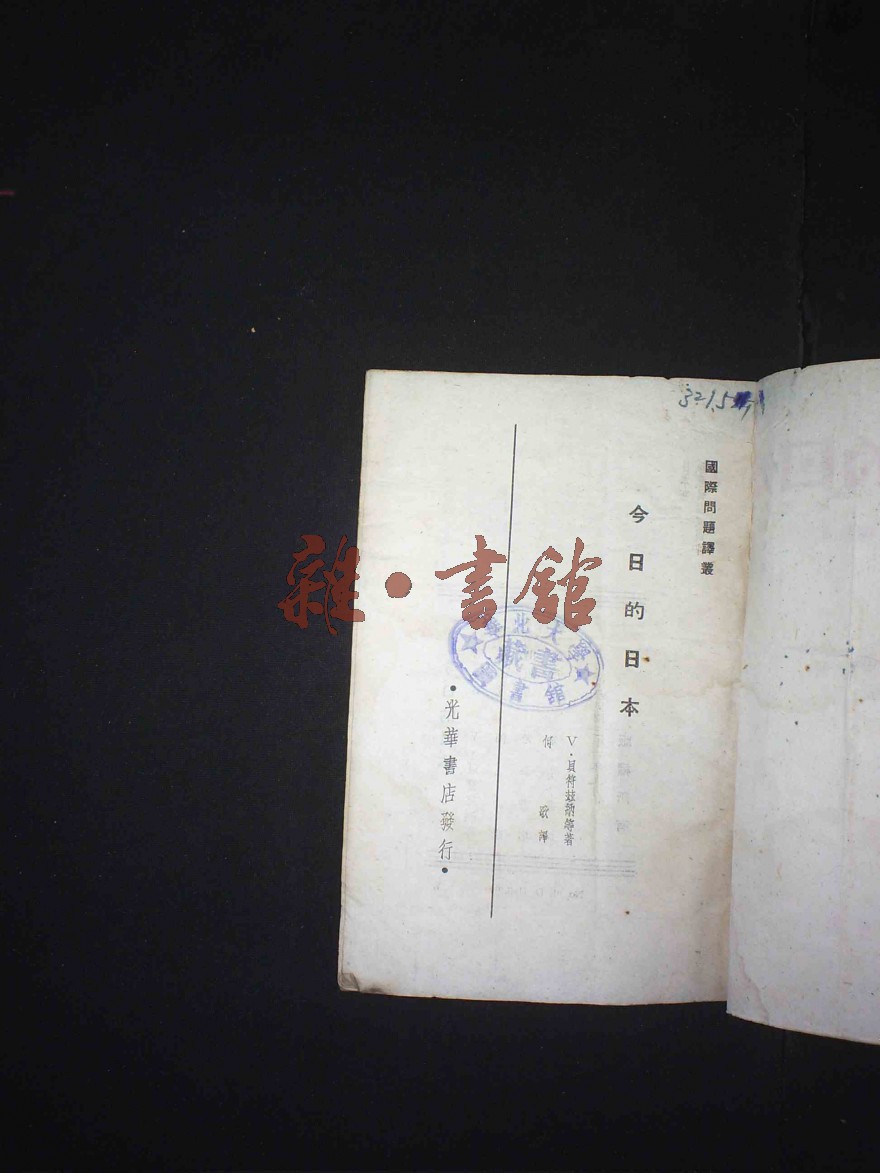 國際問題譯叢
今日的日本
V·貝符茲納等著
何 歌譯
·光華書店發行·
藏書
書館
雜·書館
321.5